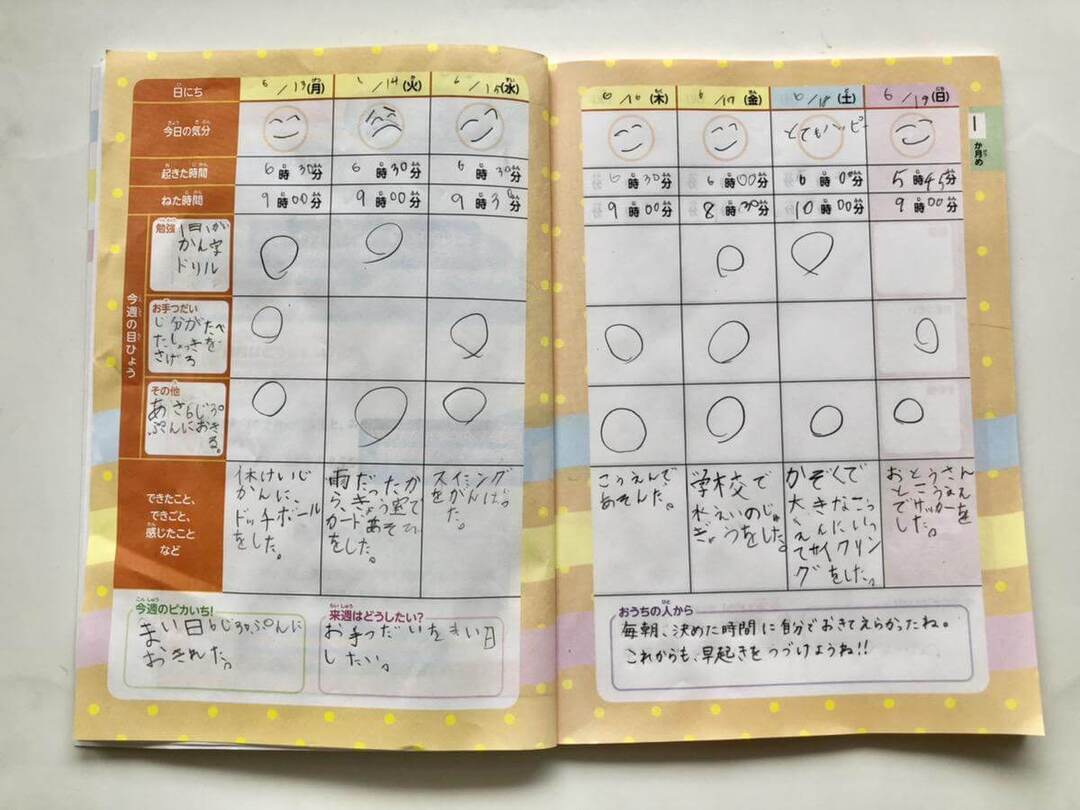 日にち 6/13(月) 6/14(火) 6/15(水)
今日の気分
起きた時間 6時30分 6時30分 6時30分
ねた時間 9時00分 9時00分 9時30分
今週の目ひょう
勉強
1日1かい
かん字
ドリル
お手つだい
じ分がたべ
たしょっきを
さげる
その他
あさ6じ30
ぷんにおき
る。
できたこと、
できごと、
感じたこと
など
休けいじ
かんに、
ドッチボール
をした。
雨だったか
ら、きょう室で
カードあそび
をした。
スイミング
をがんばっ
た。
今週のピカいち!
まい日6じ30ぷんに
おきれた。
来週はどうしたい?
お手つだいをまい日
したい。
6/16(木) 6/17(金) 6/18(土) 6/19(日)
とてもハッピー
6時30分 6時00分 6時00分 5時45分
9時00分 8時30分 10時00分 9時00分
こうえんで
あそんだ。
学校で
水えいのじゅ
ぎょうをした。
かぞくで
大きなこう
えんにいっ
てサイクリン
グをした。
おとうさん
とこうえん
でサッカーを
した。
おうちの人から
毎朝、決めた時間に自分でおきてえらかったね。
これからも、早起きをつづけようね!!
1
か月め